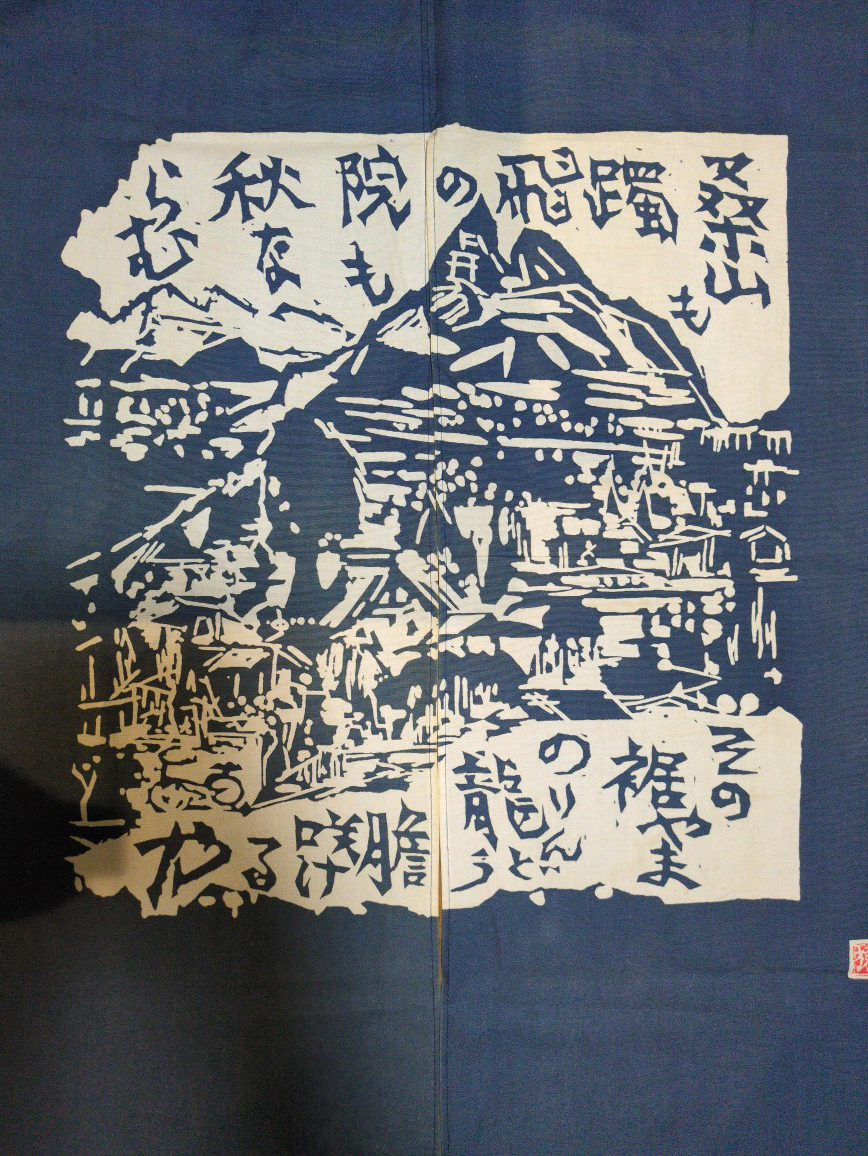 桑山も
躅飛の
院も
秋な
らむ
その
裾やま
の
りんどう
龍
膽
咲け
る
や